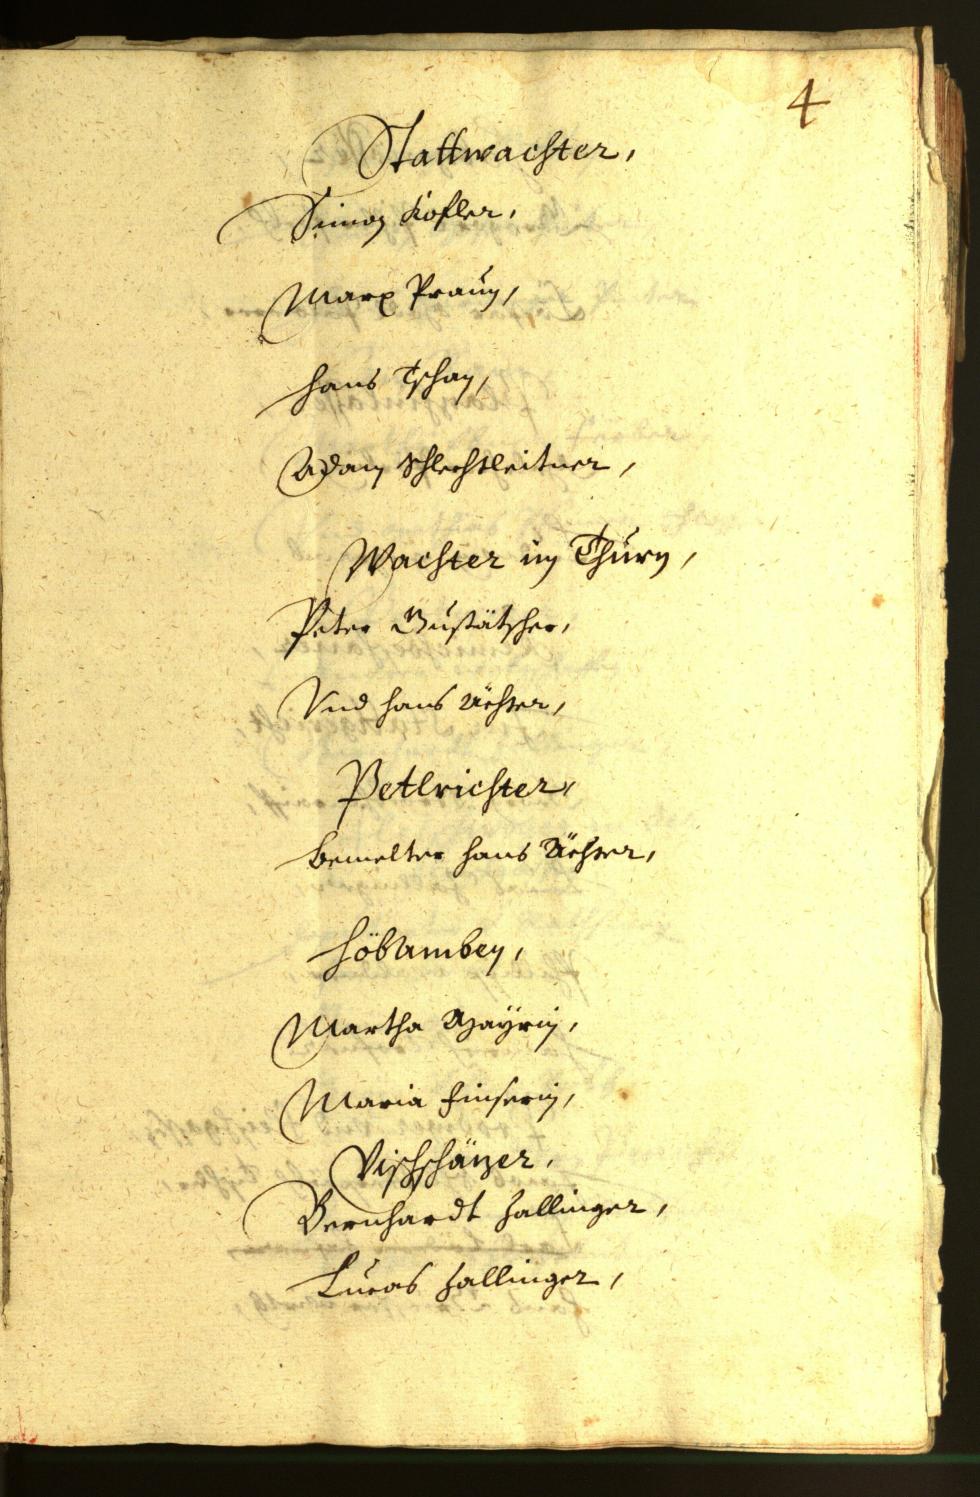 4
Stattwachter,
Simon Kofler,
Marx Praun,
Hans Tschan,
Adam Schlechtleitner,
Wachter im Thurn,
Peter Gustätscher,
Vnd Hans Ächter,
Petlrichter,
Bemelter Hans Ächter,
Höbamben,
Martha Mayrin,
Maria Finserin,
Vischschäzer,
Bernhardt Zallinger,
Lucas Zallinger,